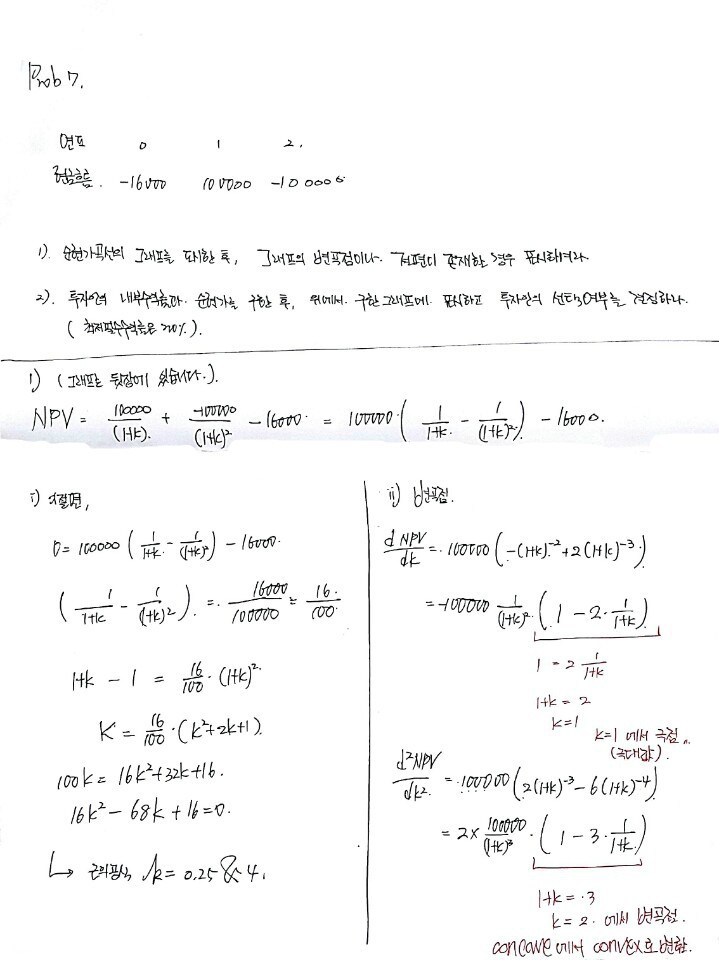 Prob 7.
연도 0 1 2.
현금흐름. -16000 100000 -100000
1). 순현가곡선의 그래프를 도시한 후, 그래프의 변곡점이나 절편이 존재할 경우 표시하여라
2). 투자안의 내부수익률과 순현가를 구한 후, 위에서 구한 그래프에 표시하고 투자안의 선택여부를 결정하라.
(최저필수수익률은 20%).
1) (그래프는 뒷장에 있습니다.).
NPV = 100000/(1+k). + -100000/(1+k)² - 16000 = 100000 ( 1/1+k. - 1/(1+k)² ) - 16000.
i) x절편,
0 = 100000 ( 1/1+k - 1/(1+k)² ) - 16000
( 1/1+k - 1/(1+k)² ). = 16000/100000 = 16/100
1+k - 1 = 16/100 · (1+k)²
K = 16/100 · (k²+2k+1)
100k = 16k²+32k+16.
16k² - 68k + 16 = 0.
↳ 근의공식 k = 0.25 & 4.
ii) 변곡점.
d NPV/dk = 100000 ( -(1+k)⁻² + 2(1+k)⁻³ )
= -100000 1/(1+k)² · ( 1 - 2 · 1/1+k )
1 = 2 1/1+k
1+k = 2
k = 1
k=1 에서 극점..
(극대값).
d²NPV/dk² = 100000 ( 2(1+k)⁻³ - 6(1+k)⁻⁴ )
= 2 × 100000/(1+k)³ · ( 1 - 3 · 1/1+k )
1+k = 3
k = 2. 에서 변곡점.
concave 에서 convex로 변함.